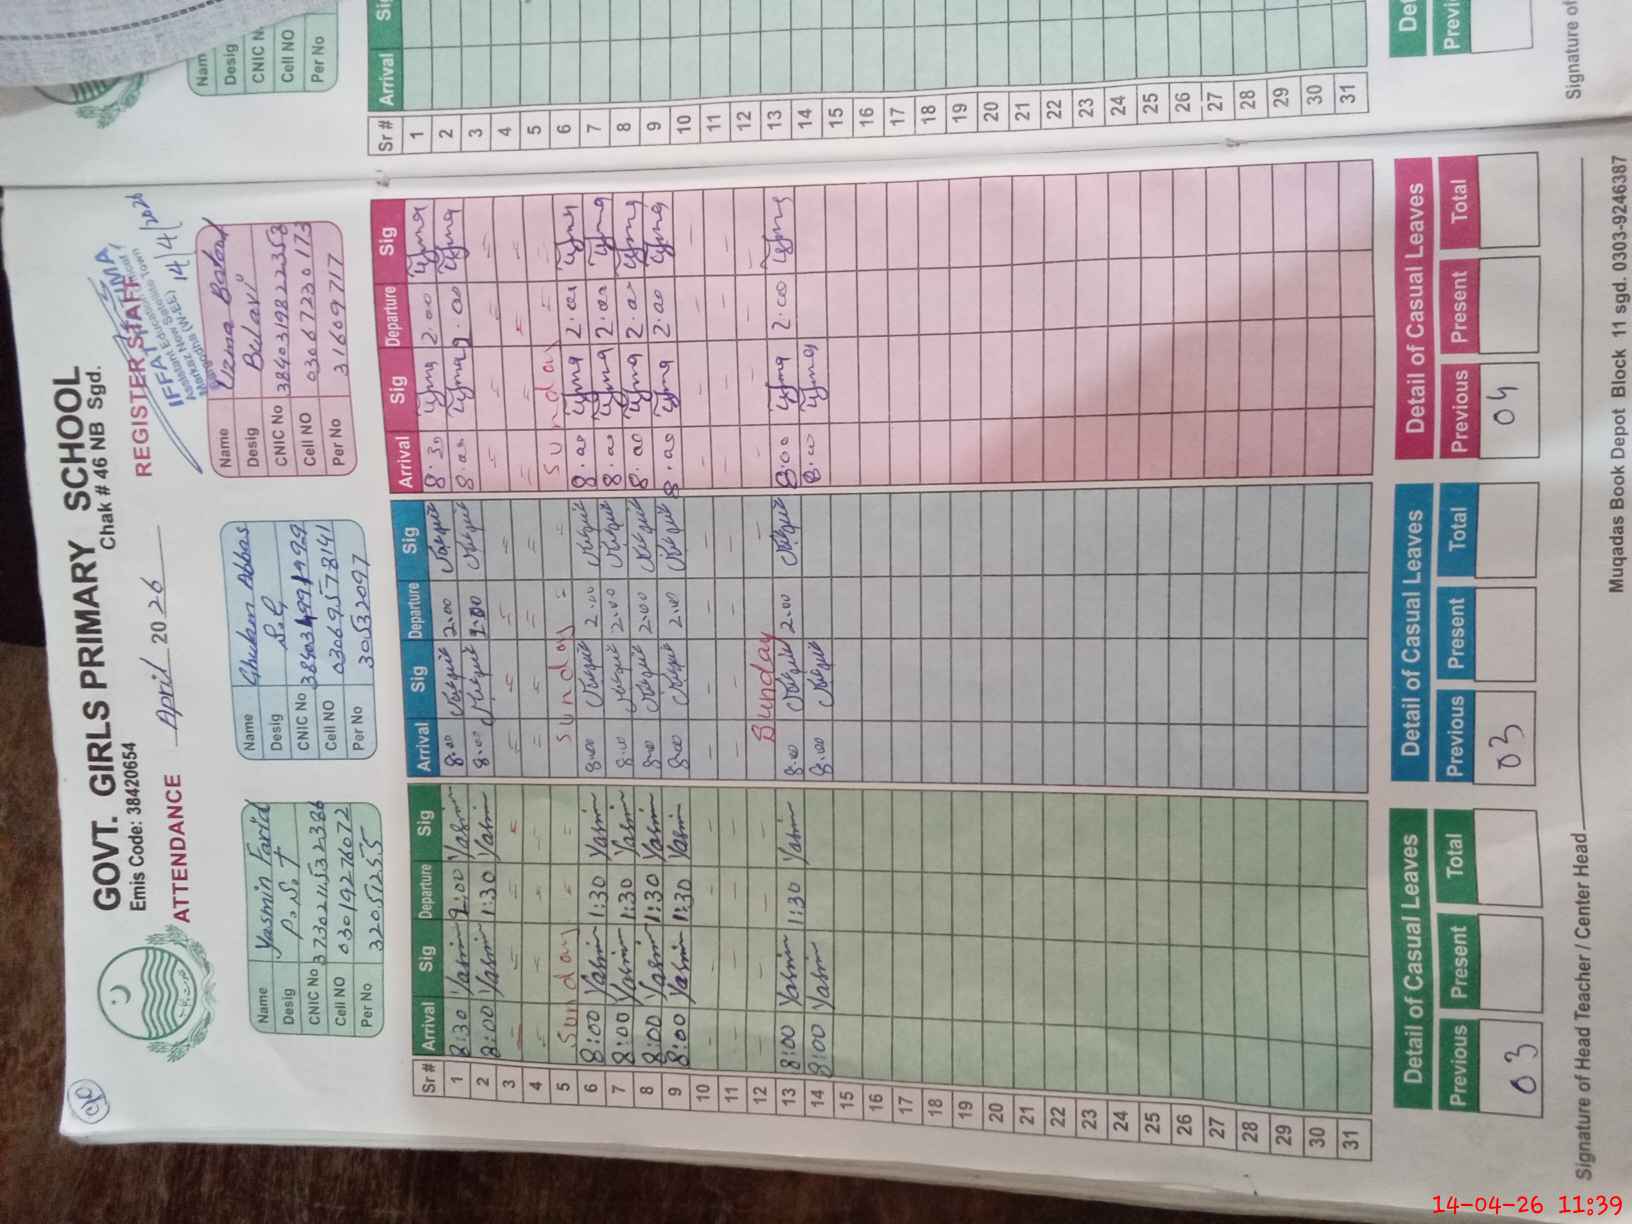 GOVT. GIRLS PRIMARY SCHOOL
Emis Code: 38420654
Chak # 46 NB Sgd.
ATTENDANCE April 2026 REGISTER STAFF
14/4/2026
Name Yasmin Farid
Desig P.S.T
CNIC No 3730211532386
Cell NO 03019276072
Per No 32051255
Name Ghulam Abbas
Desig
CNIC No
Cell NO 03069578141
Per No 30532097
Name Uzma Batool
Desig
CNIC No 3840319822358
Cell NO 03067230173
Per No 31609717
Sr # Arrival Sig Departure Sig Arrival Sig Departure Sig Arrival Sig Departure Sig
1 8:30 Yasmin 2:00 Yasmin 8:00 2.00 8.30 Uzma 2.00 Uzma
2 8:00 Yasmin 1:30 Yasmin 8:00 8.00 Uzma Uzma
3
4
5 Sunday Sunday Sunday
6 8:00 Yasmin 1:30 Yasmin 8:00 2.00 8.00 Uzma 2.00 Uzma
7 8:00 Yasmin 1:30 Yasmin 8:00 2.00 8.00 Uzma 2.00 Uzma
8 8:00 Yasmin 1:30 Yasmin 8:00 2.00 8.00 Uzma 2.00 Uzma
9 8:00 Yasmin 1:30 Yasmin 8:00 2.00 8.00 Uzma 2.00 Uzma
10
11
12 Sunday
13 8:00 Yasmin 1:30 Yasmin 8:00 2.00 8:00 Uzma 2.00 Uzma
14 8:00 Yasmin 8:00 8.00 Uzma
15
16
17
18
19
20
21
22
23
24
25
26
27
28
29
30
31
Detail of Casual Leaves Detail of Casual Leaves Detail of Casual Leaves
Previous Present Total Previous Present Total Previous Present Total
03 03 04
Signature of Head Teacher / Center Head
Muqadas Book Depot Block 11 sgd. 0303-9246387
Desig
CNIC N
Cell NO
Per No
Sr # Arrival
1
2
3
4
5
6
7
8
9
10
11
12
13
14
15
16
17
18
19
20
21
22
23
24
25
26
27
28
29
30
31
Signature of
14-04-26 11:39